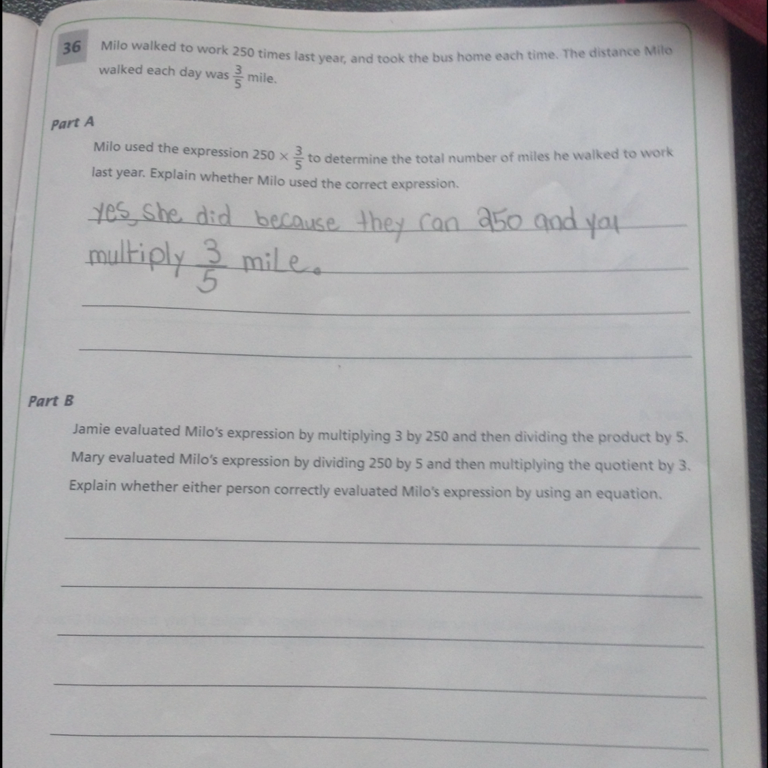 36 Milo walked to work 250 times last year, and took the bus home each time. The distance Milo
walked each day was 3/5 mile.
Part A
Milo used the expression 250 × 3/5 to determine the total number of miles he walked to work
last year. Explain whether Milo used the correct expression.
yes, she did because they ran 250 and you
multiply 3/5 mile.
Part B
Jamie evaluated Milo's expression by multiplying 3 by 250 and then dividing the product by 5.
Mary evaluated Milo's expression by dividing 250 by 5 and then multiplying the quotient by 3.
Explain whether either person correctly evaluated Milo's expression by using an equation.